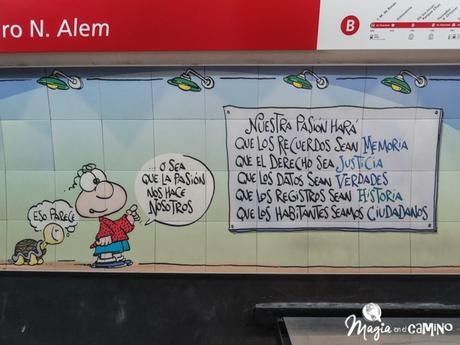 ro N. Alem
B
NUESTRA PASIÓN HARÁ
QUE LOS RECUERDOS SEAN MEMORIA
QUE EL DERECHO SEA JUSTICIA
QUE LOS DATOS SEAN VERDADES
QUE LOS REGISTROS SEAN HISTORIA
QUE LOS HABITANTES SEAMOS CIUDADANOS
O SEA
QUE LA PASIÓN
NOS HACE
NOSOTROS
ESO PARECE
Magia en el CAMINO